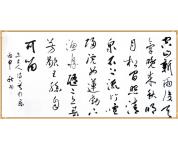 空山新雨後天
氣晚來秋明
月松間照清
泉石上流竹
喧歸浣女蓮動下
漁舟隨意春
芳歇王孫自
可留